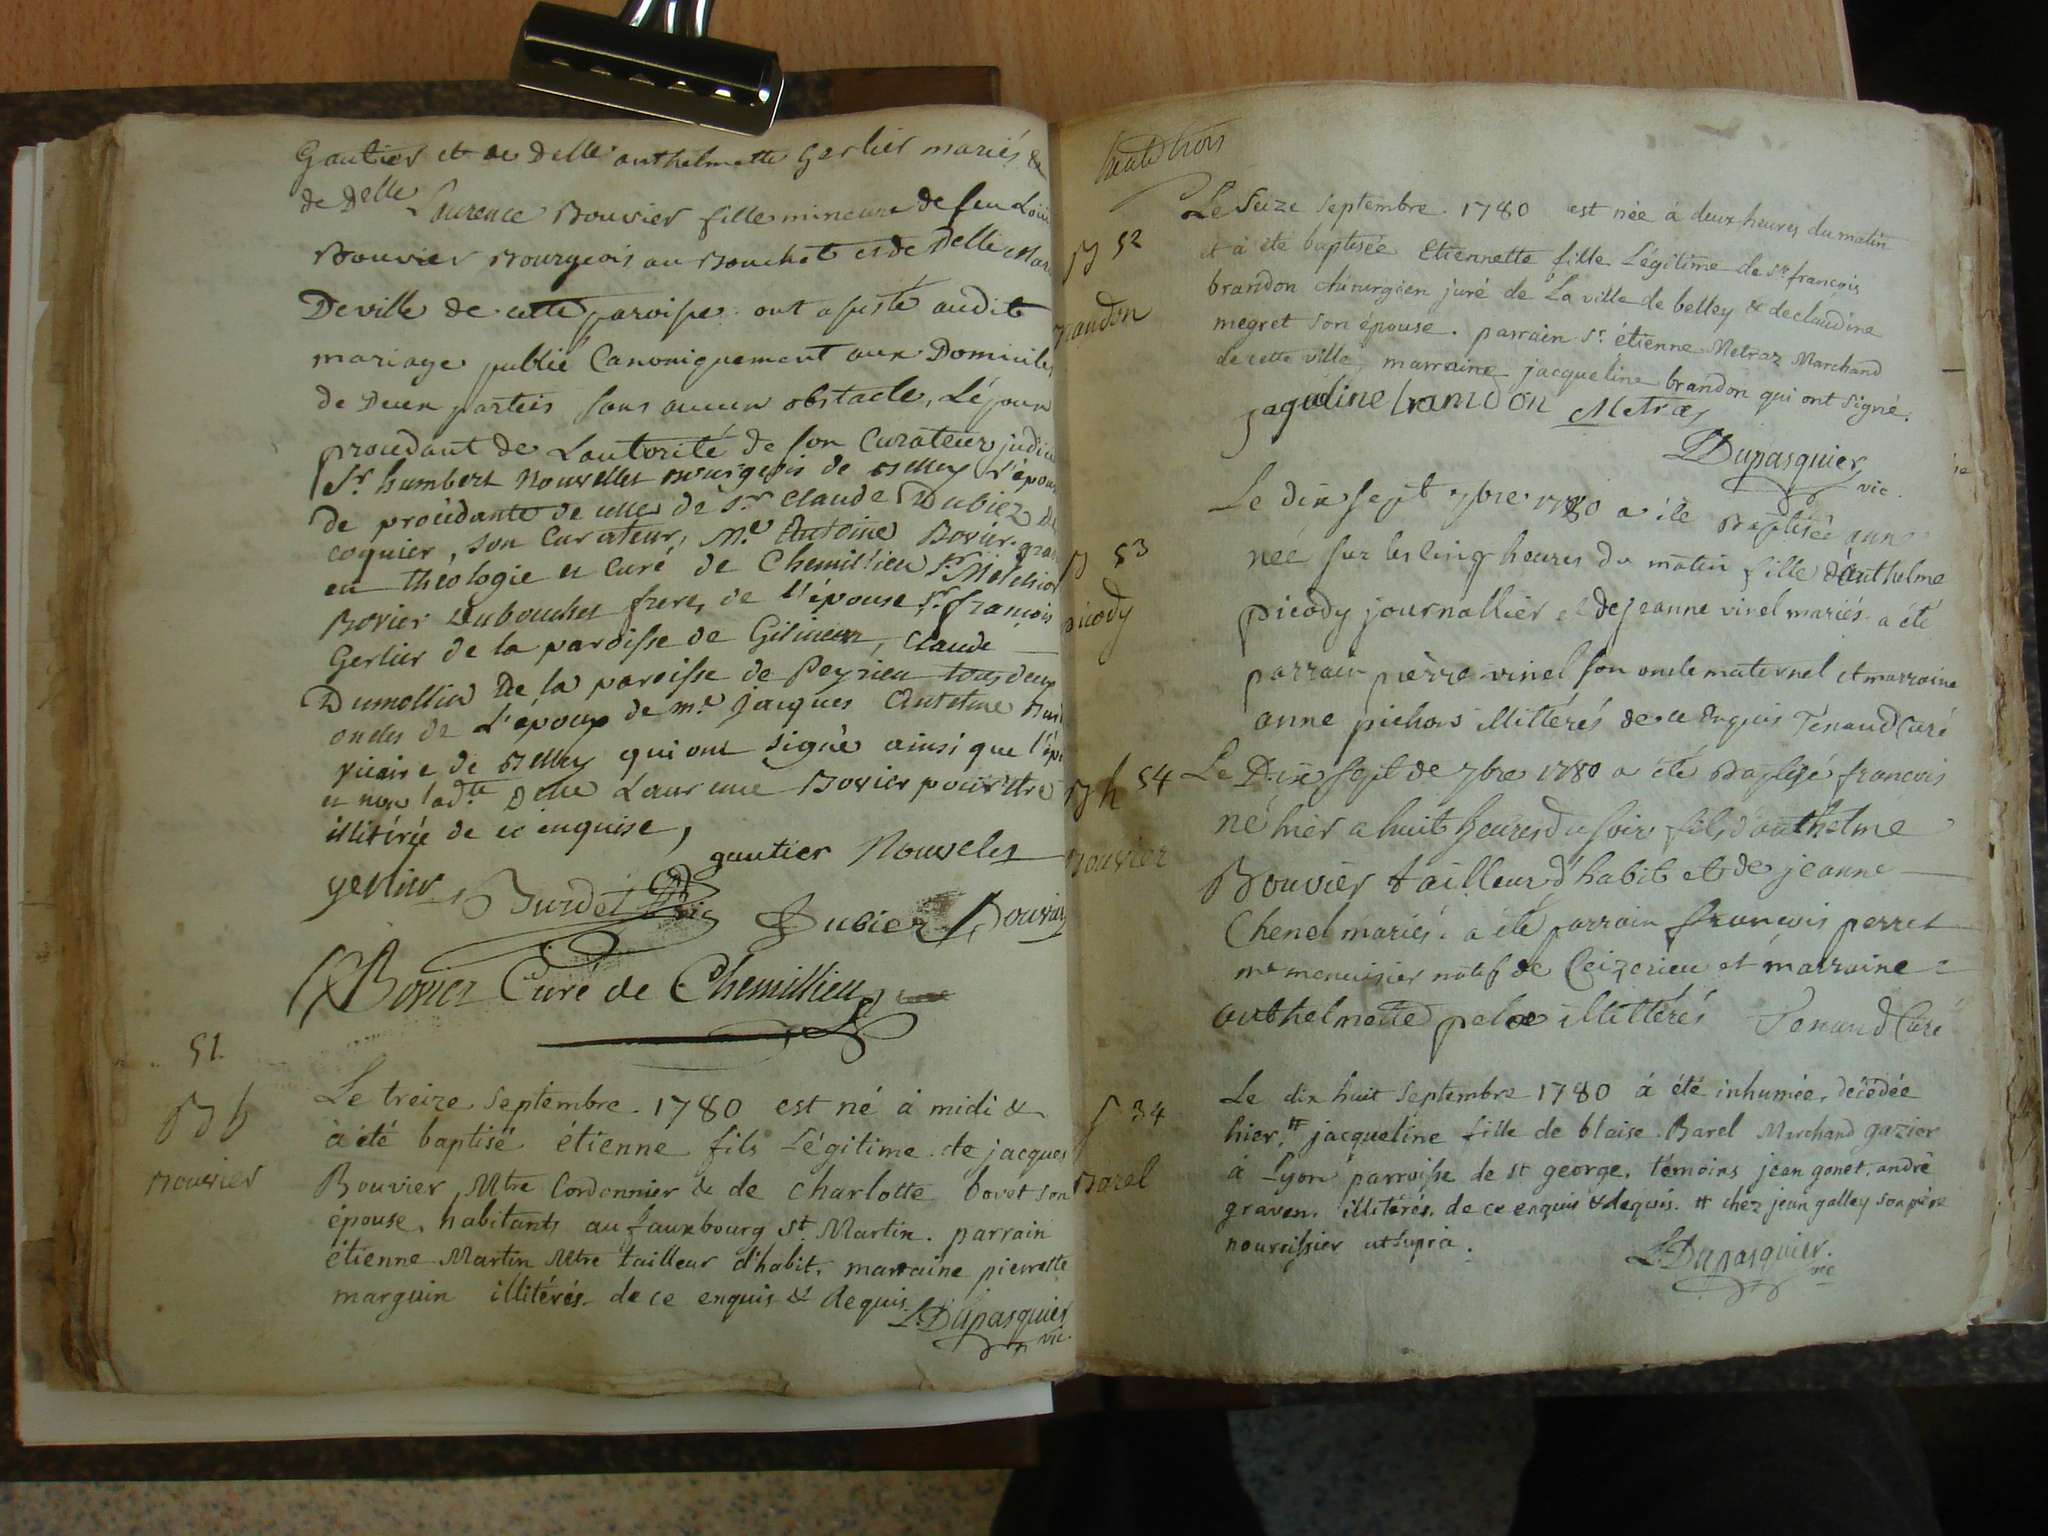 Gautier et de Delle anthelmette Gerlier mariés &
de Delle Laurence Bouvier fille mineure de feu Louis
Bouvier Bourgeois au Bouchet et de Delle Marie
Deville de cette paroisse ont assisté audit
mariage publié Canoniquement aux Domiciles
de Deux parties sans aucun obstacle, L'époux
procedant de Lautorité de son Curateur judici
Sr. humbert Nouvellet Bourgeois de Belley L'épouse
de procédante de celle de Sr Claude Dubiez de
coquier, son Curateur, Mre Antoine Bovier gradué
en théologie et Curé de Chemillieu Sr Melchior
Bovier Dubouchet frere, de l'épouse, Sr françois
Gerlier de la paroisse de Gilineux, Claude
Dumollin De la paroisse de Peyrieu tous deux
oncles de L'époux de me. Jacques Antoine Burdet
vicaire de Belley qui ont signé ainsi que l'époux
et non ladte Delle Laurence Bovier pour être
illitérée de ce enquise,
gautier Nouvelet
gerlier Burdet vic Dubiez Bouvier
Bovier Curé de Chemillieu
51.
B h
Bouvier
Le treize Septembre 1780 est né à midi &
à été baptisé étienne fils Légitime de jacques
Bouvier Mtre Cordonnier & de charlotte bovet son
épouse, habitants au fauxbourg St. Martin. parrain
étienne Martin Mtre tailleur d'habit, marraine pierrette
marguin illitérés de ce enquis & dequis.
L. Dupasquier
vic.
trente trois
B 52
Brandon
Le Seize Septembre 1780 est née à deux heures du matin
et à été baptisée Etiennette fille Légitime de Sr. françois
brandon chirurgien juré de La ville de belley & de claudine
megret son épouse. parrain Sr. étienne Metraz Marchand
de cette ville, marraine jacqueline brandon qui ont Signé.
jaquline brandon Metraz
L. Dupasquier
vic.
B 53
picody
Le dix sept 7bre 1780 a été Baptisée anne
neé sur les cinq heures du matin fille d'Anthelme
picody journallier et de jeanne vinel mariés a été
parrain pierre vinel son oncle maternel et marraine
anne pichois illittérés de ce enquis Ténaud Curé
B h 54
Bouvier
Le Dix sept de 7bre 1780 a été Baptisé françois
né hier a huit heures du soir fils d'anthelme
Bouvier tailleur d'habit et de jeanne
Chenel mariés. a été parrain françois perret
me menuisier natif de Ceizerieu et marraine
anthelmette pelæ illittérés Tenaud Curé
S 34
Barel
Le dix huit Septembre 1780 à été inhumée, décédée
hier, # jacqueline fille de blaise Barel Marchand gazier
à Lyon parroisse de st george. témoins jean gonet, andré
graven. illitérés. de ce enquis & dequis. # chez jean galley son père
nourrissier ut supra.
L. Dupasquier.
vic